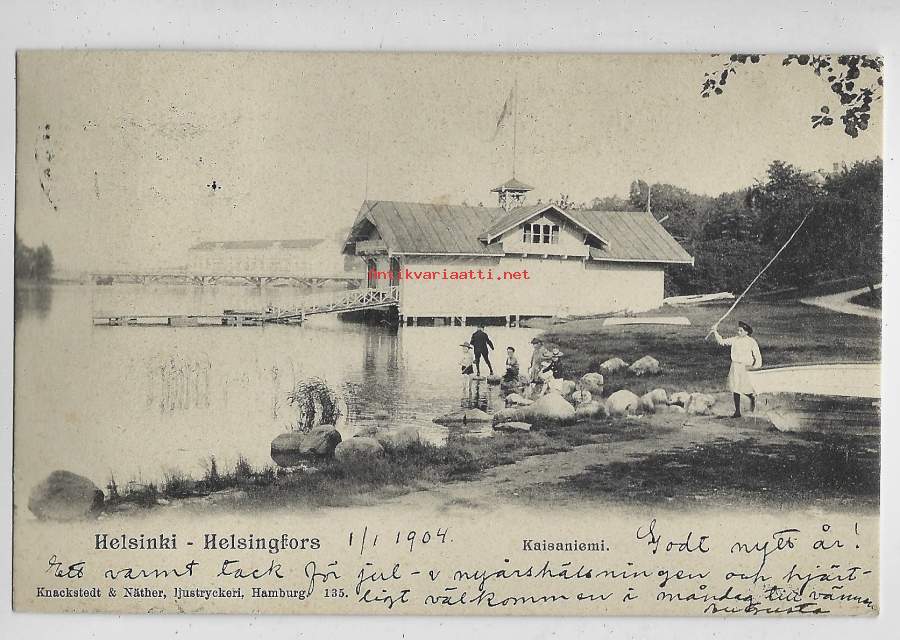 antikvariaatti.net
Helsinki - Helsingfors 1/1 1904. Kaisaniemi. Godt nytt år!
Ett varmt tack för jul- o nyårshälsningen och hjärt-
Knackstedt & Näther, ljustryckeri, Hamburg. 135. ligt välkommen i måndag till vännen
Augusta